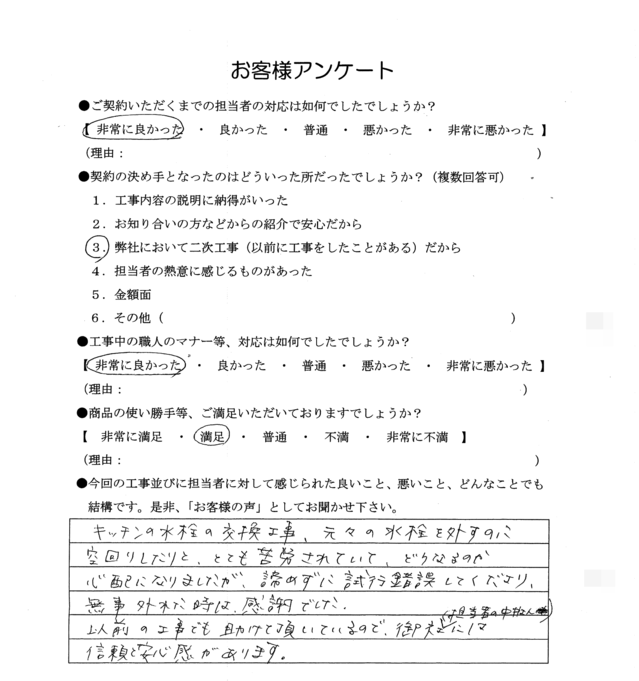 お客様アンケート
●ご契約いただくまでの担当者の対応は如何でしたでしょうか？
【 非常に良かった ・ 良かった ・ 普通 ・ 悪かった ・ 非常に悪かった 】
（理由： ）
●契約の決め手となったのはどういった所だったでしょうか？（複数回答可）
1．工事内容の説明に納得がいった
2．お知り合いの方などからの紹介で安心だから
3．弊社において二次工事（以前に工事をしたことがある）だから
4．担当者の熱意に感じるものがあった
5．金額面
6．その他（ ）
●工事中の職人のマナー等、対応は如何でしたでしょうか？
【 非常に良かった ・ 良かった ・ 普通 ・ 悪かった ・ 非常に悪かった 】
（理由： ）
●商品の使い勝手等、ご満足いただいておりますでしょうか？
【 非常に満足 ・ 満足 ・ 普通 ・ 不満 ・ 非常に不満 】
（理由： ）
●今回の工事並びに担当者に対して感じられた良いこと、悪いこと、どんなことでも
結構です。是非、「お客様の声」としてお聞かせ下さい。
キッチンの水栓の交換工事、元々の水栓を外すのに
空回りしたりと、とても苦労されていて、どうなるのか
心配になりましたが、諦めずに試行錯誤してくださり、
無事外れた時は、感謝でした。
（担当者の
以前の工事でも助けて頂いているので、御社には
信頼と安心感があります。